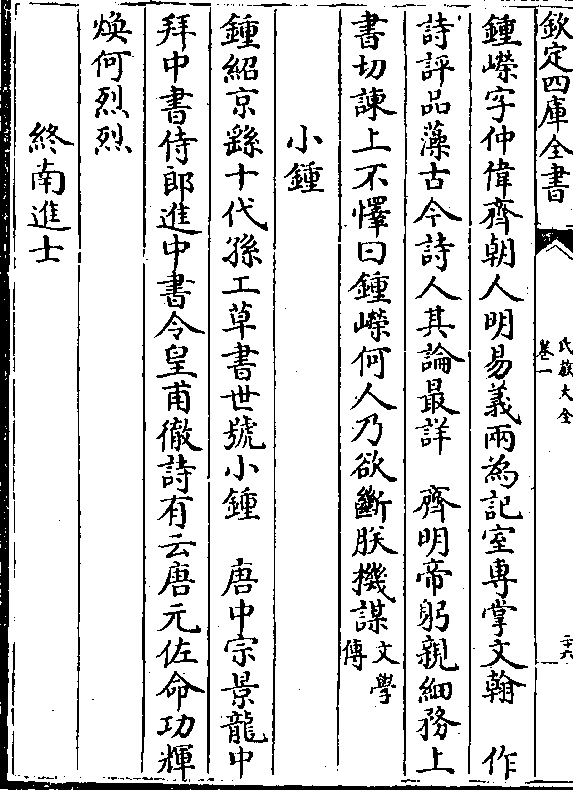 欽定四庫全書
氏族大全
卷一
二十六
鍾嶸字仲偉齊朝人明易義兩為記室專掌文翰　作
詩評品藻古今詩人其論最詳　齊明帝躬親細務上
書切諫上不懌曰鍾嶸何人乃欲斷朕機謀文學傳
小鍾
鍾紹京繇十代孫工草書世號小鍾　唐中宗景龍中
拜中書侍郎進中書令皇甫徹詩有云唐元佐命功輝
煥何烈烈
終南進士